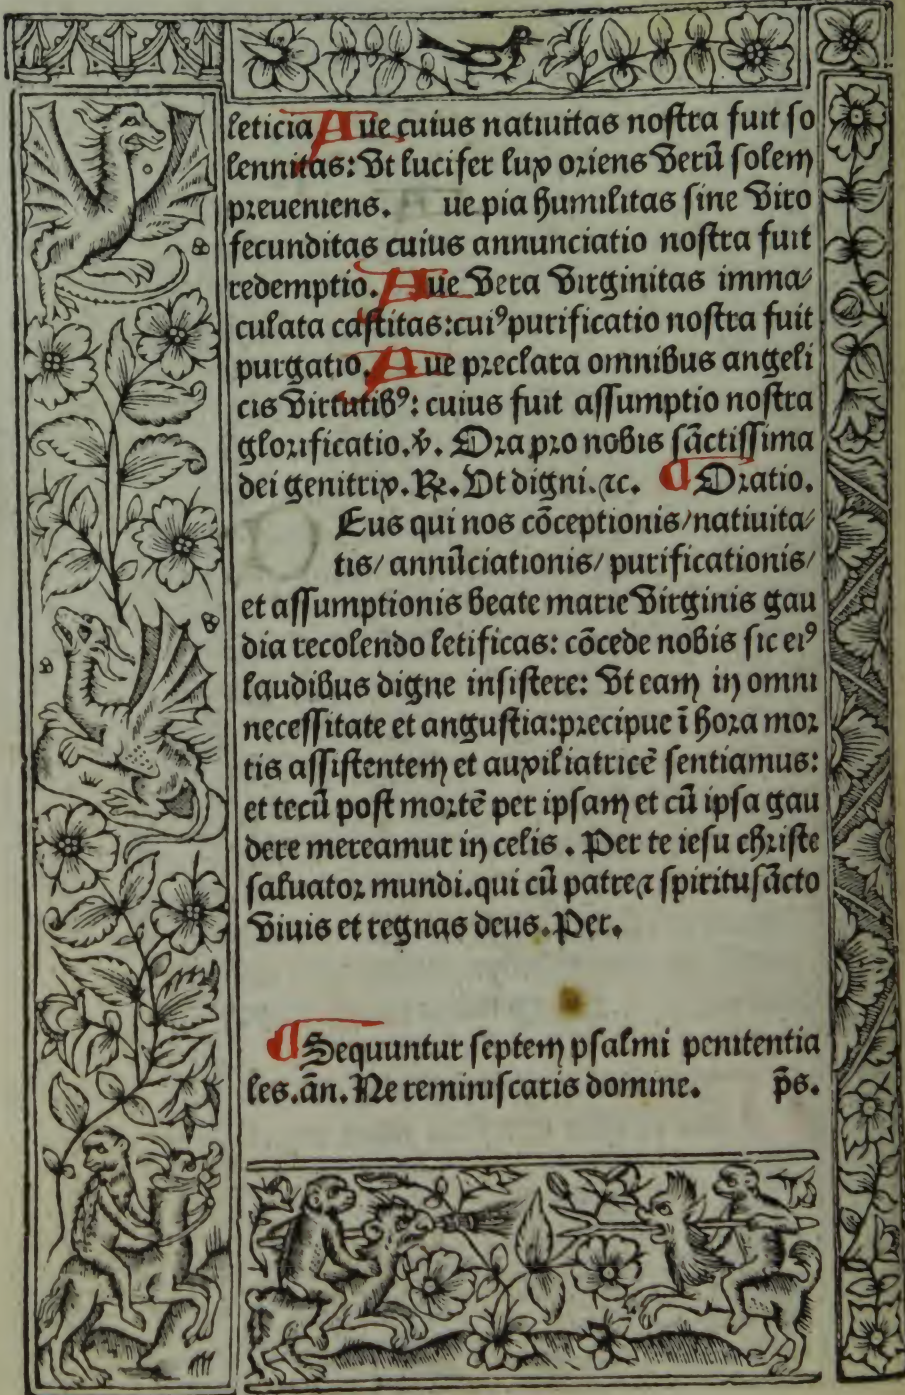 leticia Aue cuius natiuitas nostra fuit so
lennitas: Vt lucifer lux oriens verū solem
preueniens. ue pia humilitas sine viro
fecunditas cuius annunciatio nostra fuit
redemptio. Aue vera virginitas imma/
culata castitas: cuiꝰ purificatio nostra fuit
purgatio. Aue preclara omnibus angeli
cis virtutibꝰ: cuius fuit assumptio nostra
glorificatio. ℣. Ora pro nobis sāctissima
dei genitrix. ℟. Vt digni. ⁊c. ¶ Oratio.
Eus qui nos cōceptionis/ natiuita/
tis/ annūciationis/ purificationis/
et assumptionis beate marie virginis gau
dia recolendo letificas: cōcede nobis sic eiꝰ
laudibus digne insistere: vt eam in omni
necessitate et angustia: precipue ī hora mor
tis assistentem et auxiliatricē sentiamus:
et tecū post mortē per ipsam et cū ipsa gau
dere mereamur in celis. Per te iesu christe
saluator mundi. qui cū patre ⁊ spiritu sācto
viuis et regnas deus. Per.
¶ Sequuntur septem psalmi penitentia
les. ān. Ne reminiscaris domine. p̄s.